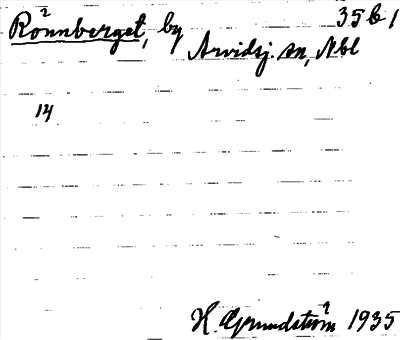 Ronnberget, by 35 b 1
Arvidsj. sn, Nbl
14
H. Grundström 1935